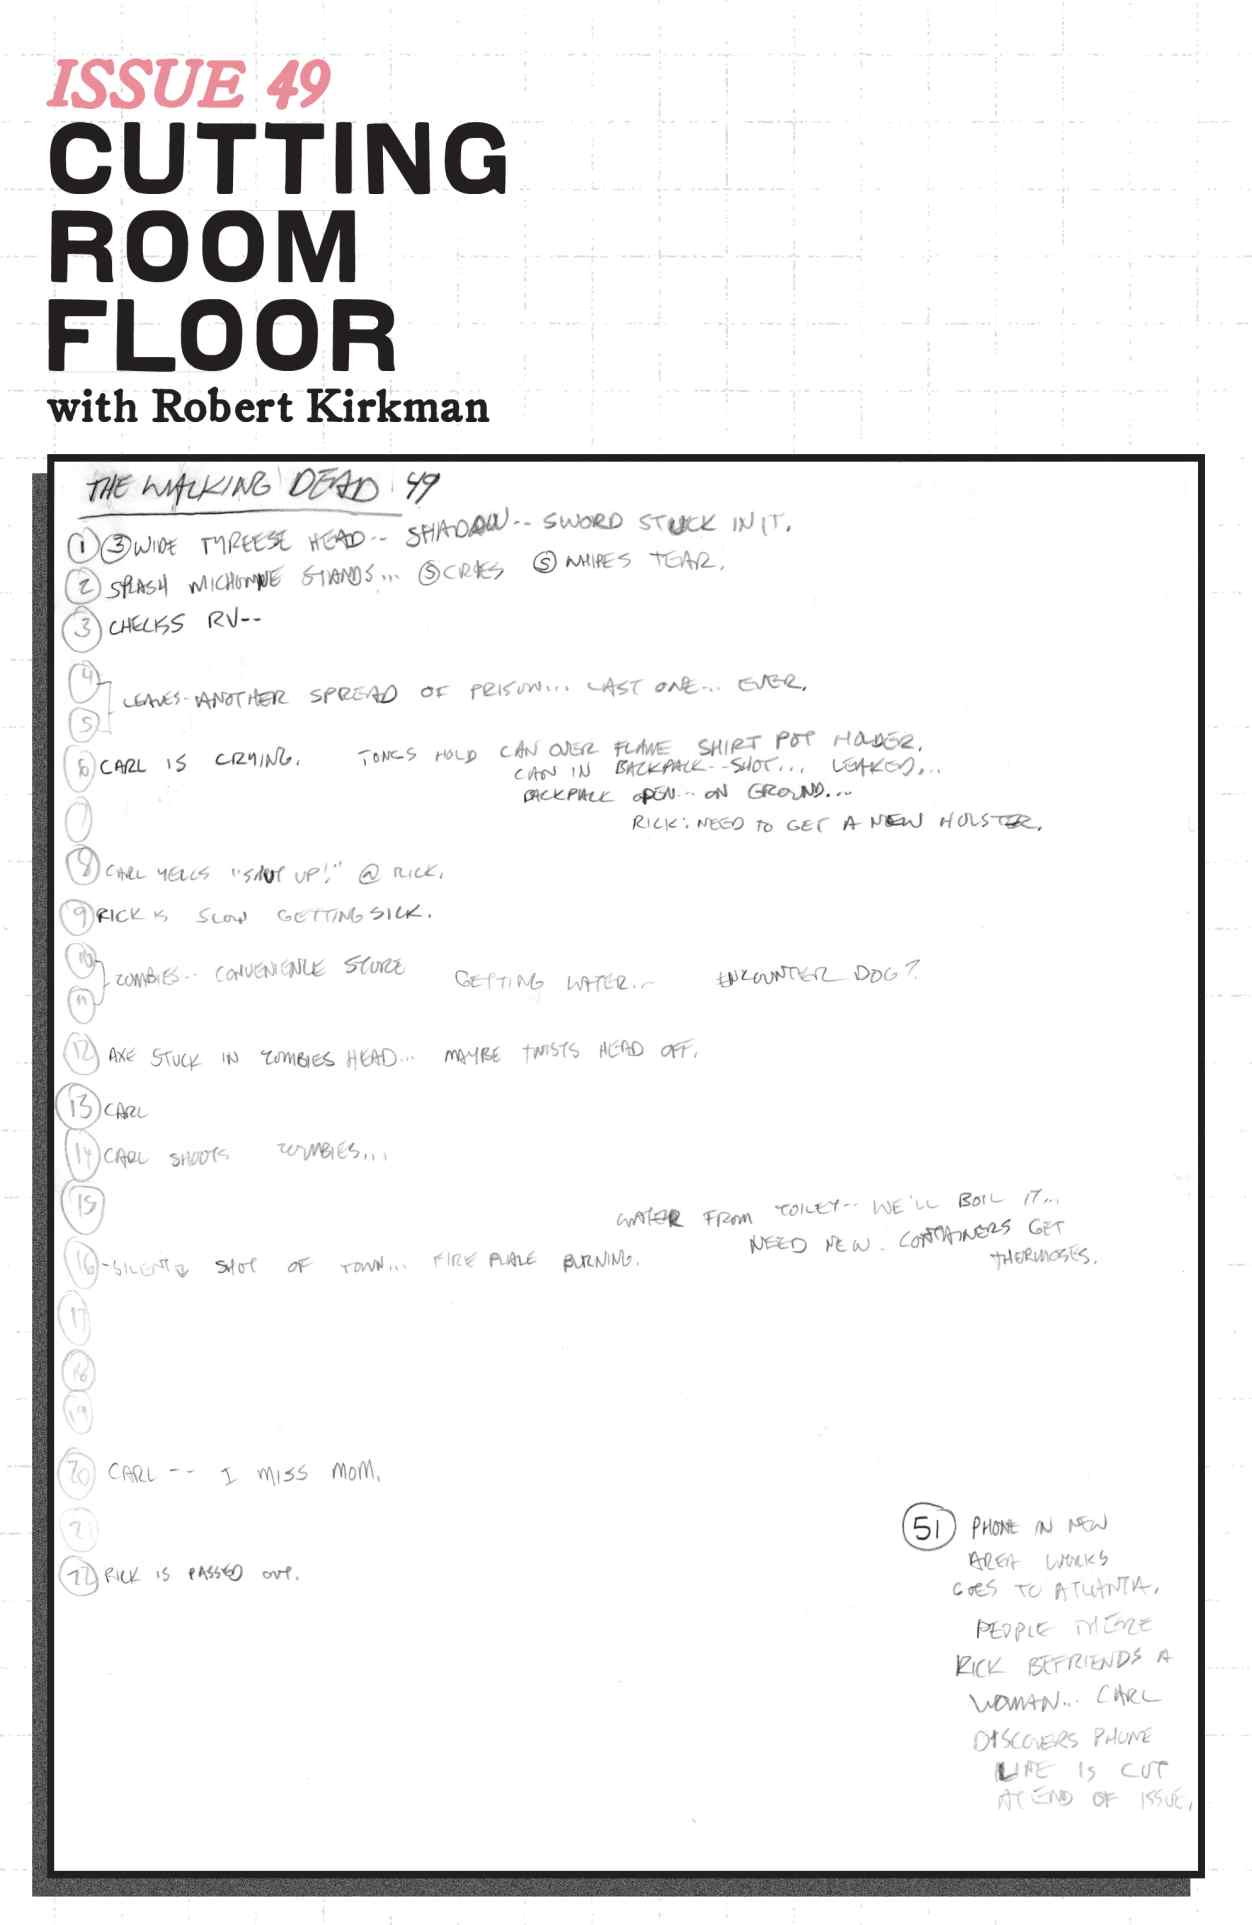 ISSUE 49
CUTTING
ROOM
FLOOR
with Robert Kirkman
THE WALKING DEAD 49
1 3 WIDE TYREESE HEAD-- SHADOW-- SWORD STUCK IN IT.
2 SPLASH MICHONNE STANDS... S CRIES S WHIPES TEAR.
3 CHECKS RV--
4
LEAVES--ANOTHER SPREAD OF PRISON... LAST ONE... EVER.
5
6 CARL IS CRYING. TONGS HOLD CAN OVER FLAME SHIRT POT HOLDER.
CAN IN BACKPACK--SHOT... LEAKED...
BACKPACK OPEN... ON GROUND...
7
RICK: NEED TO GET A NEW HOLSTER.
8 CARL YELLS "SHUT UP!" @ RICK.
9 RICK IS SLOW GETTING SICK.
10
ZOMBIES-- CONVENIENCE STORE GETTING WATER... ENCOUNTER DOG?
11
12 AXE STUCK IN ZOMBIES HEAD... MAYBE TWISTS HEAD OFF.
13 CARL
14 CARL SHOOTS ZOMBIES...
15
WATER FROM TOILET-- WE'LL BOIL IT...
NEED NEW CONTAINERS GET
THERMOSES.
16 -SILENT SHOT OF TOWN... FIRE PLACE BURNING.
17
18
19
20 CARL -- I MISS MOM.
21
22 RICK IS PASSED OUT.
51 PHONE IN NEW
AREA WORKS
GOES TO ATLANTA.
PEOPLE THERE
RICK BEFRIENDS A
WOMAN... CARL
DISCOVERS PHONE
LINE IS CUT
AT END OF ISSUE.